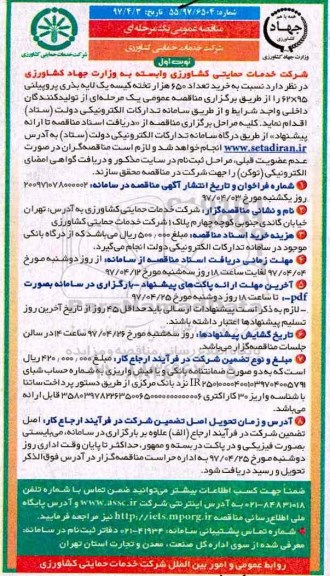 شماره: ۵۵/۹۷/۶۵۰۴ تاریخ: ۹۷/۴/۳
مناقصه عمومی یک مرحله‌ای
شرکت خدمات حمایتی کشاورزی
نوبت اول
جهاد
وزارت جهاد کشاورزی
شرکت خدمات حمایتی کشاورزی
شرکت خدمات حمایتی کشاورزی وابسته به وزارت جهاد کشاورزی
در نظر دارد نسبت به خرید تعداد ۶۵۰ هزار تخته کیسه یک لایه بذری پروپیلنی
۶۲×۹۵ را از طریق برگزاری مناقصه عمومی یک مرحله‌ای از تولیدکنندگان
داخلی واجد شرایط و از طریق سامانه تدارکات الکترونیکی دولت (ستاد)
اقدام نماید. کلیه مراحل برگزاری مناقصه از «دریافت اسناد مناقصه تا ارائه
پیشنهاد» از طریق درگاه سامانه تدارکات الکترونیکی دولت (ستاد) به آدرس
www.setadiran.ir انجام خواهد شد و لازم است مناقصه‌گران در صورت
عدم عضویت قبلی، مراحل ثبت‌نام در سایت مذکور و دریافت گواهی امضای
الکترونیکی (توکن) را جهت شرکت در مناقصه محقق سازند.
۱ شماره فراخوان و تاریخ انتشار آگهی مناقصه در سامانه: ۲۰۰۹۷۰۷۲۰۸۰۰۰۰۰۲
روز یکشنبه مورخ ۹۷/۰۴/۰۳
۲ نام و نشانی مناقصه‌گزار: شرکت خدمات حمایتی کشاورزی به آدرس: تهران
خیابان گاندی جنوبی کوچه چهارم پلاک ۱ شرکت خدمات حمایتی کشاورزی
۳ هزینه خرید اسناد مناقصه: مبلغ ۵۰۰,۰۰۰ ریال می‌باشد که از درگاه بانکی
موجود در سامانه تدارکات الکترونیکی دولت انجام می‌گیرد.
۴ مهلت زمانی دریافت اسناد مناقصه از سامانه: از روز دوشنبه مورخ
۹۷/۰۴/۰۴ لغایت ساعت ۱۸ روز سه‌شنبه مورخ ۹۷/۰۴/۱۲
۵ آخرین مهلت ارائه پاکت‌های پیشنهاد -بارگذاری در سامانه بصورت
pdf- تا ساعت ۱۸ روز دوشنبه مورخ ۹۷/۰۴/۲۵
- لازم به ذکر است پیشنهادات ارسالی باید حداقل ۴۵ روز از تاریخ آخرین روز
تسلیم پیشنهادها اعتبار داشته باشند.
۶ تاریخ گشایش پیشنهادها: روز سه‌شنبه مورخ ۹۷/۰۴/۲۶ ساعت ۱۴ در سالن
جلسات مناقصه‌گزار می‌باشد.
۷ مبلغ و نوع تضمین شرکت در فرآیند ارجاع کار: مبلغ ۴۲۰,۰۰۰,۰۰۰ ریال
است که به دو صورت ضمانتنامه بانکی و یا فیش واریزی به شماره حساب شبای
نزد بانک مرکزی از طریق دستور پرداخت ساتنا
با شناسه واریز ۳۰ کاراکتری قابل ارائه
می‌باشد.
۸ آدرس و زمان تحویل اصل تضمین شرکت در فرآیند ارجاع کار: اصل
تضمین شرکت در فرآیند ارجاع (الف) علاوه بر بارگزاری در سامانه، می‌بایستی
بصورت فیزیکی و در پاکت دربسته و ممهور، حداکثر تا پایان وقت اداری روز
دوشنبه مورخ ۹۷/۰۴/۲۵ به اداره حراست مناقصه‌گزار در آدرس فوق‌الذکر
تحویل و رسید دریافت شود.
ضمناً جهت کسب اطلاعات بیشتر می‌توانید ضمن تماس با شماره تلفن
۰۲۱-۸۴۸۳۱۰۱۸ به آدرس www.assc.ir و آدرس پایگاه
ملی اطلاع‌رسانی مناقصه http://iets.mporg.ir نیز مراجعه فرمایید.
شماره تماس پشتیبانی سامانه: ۴۱۹۳۴-۰۲۱ دفاتر ثبت‌نام در سامانه،
معرفی شده از سوی اداره کل صنعت، معدن و تجارت استان تهران
روابط عمومی و امور بین الملل شرکت خدمات حمایتی کشاورزی